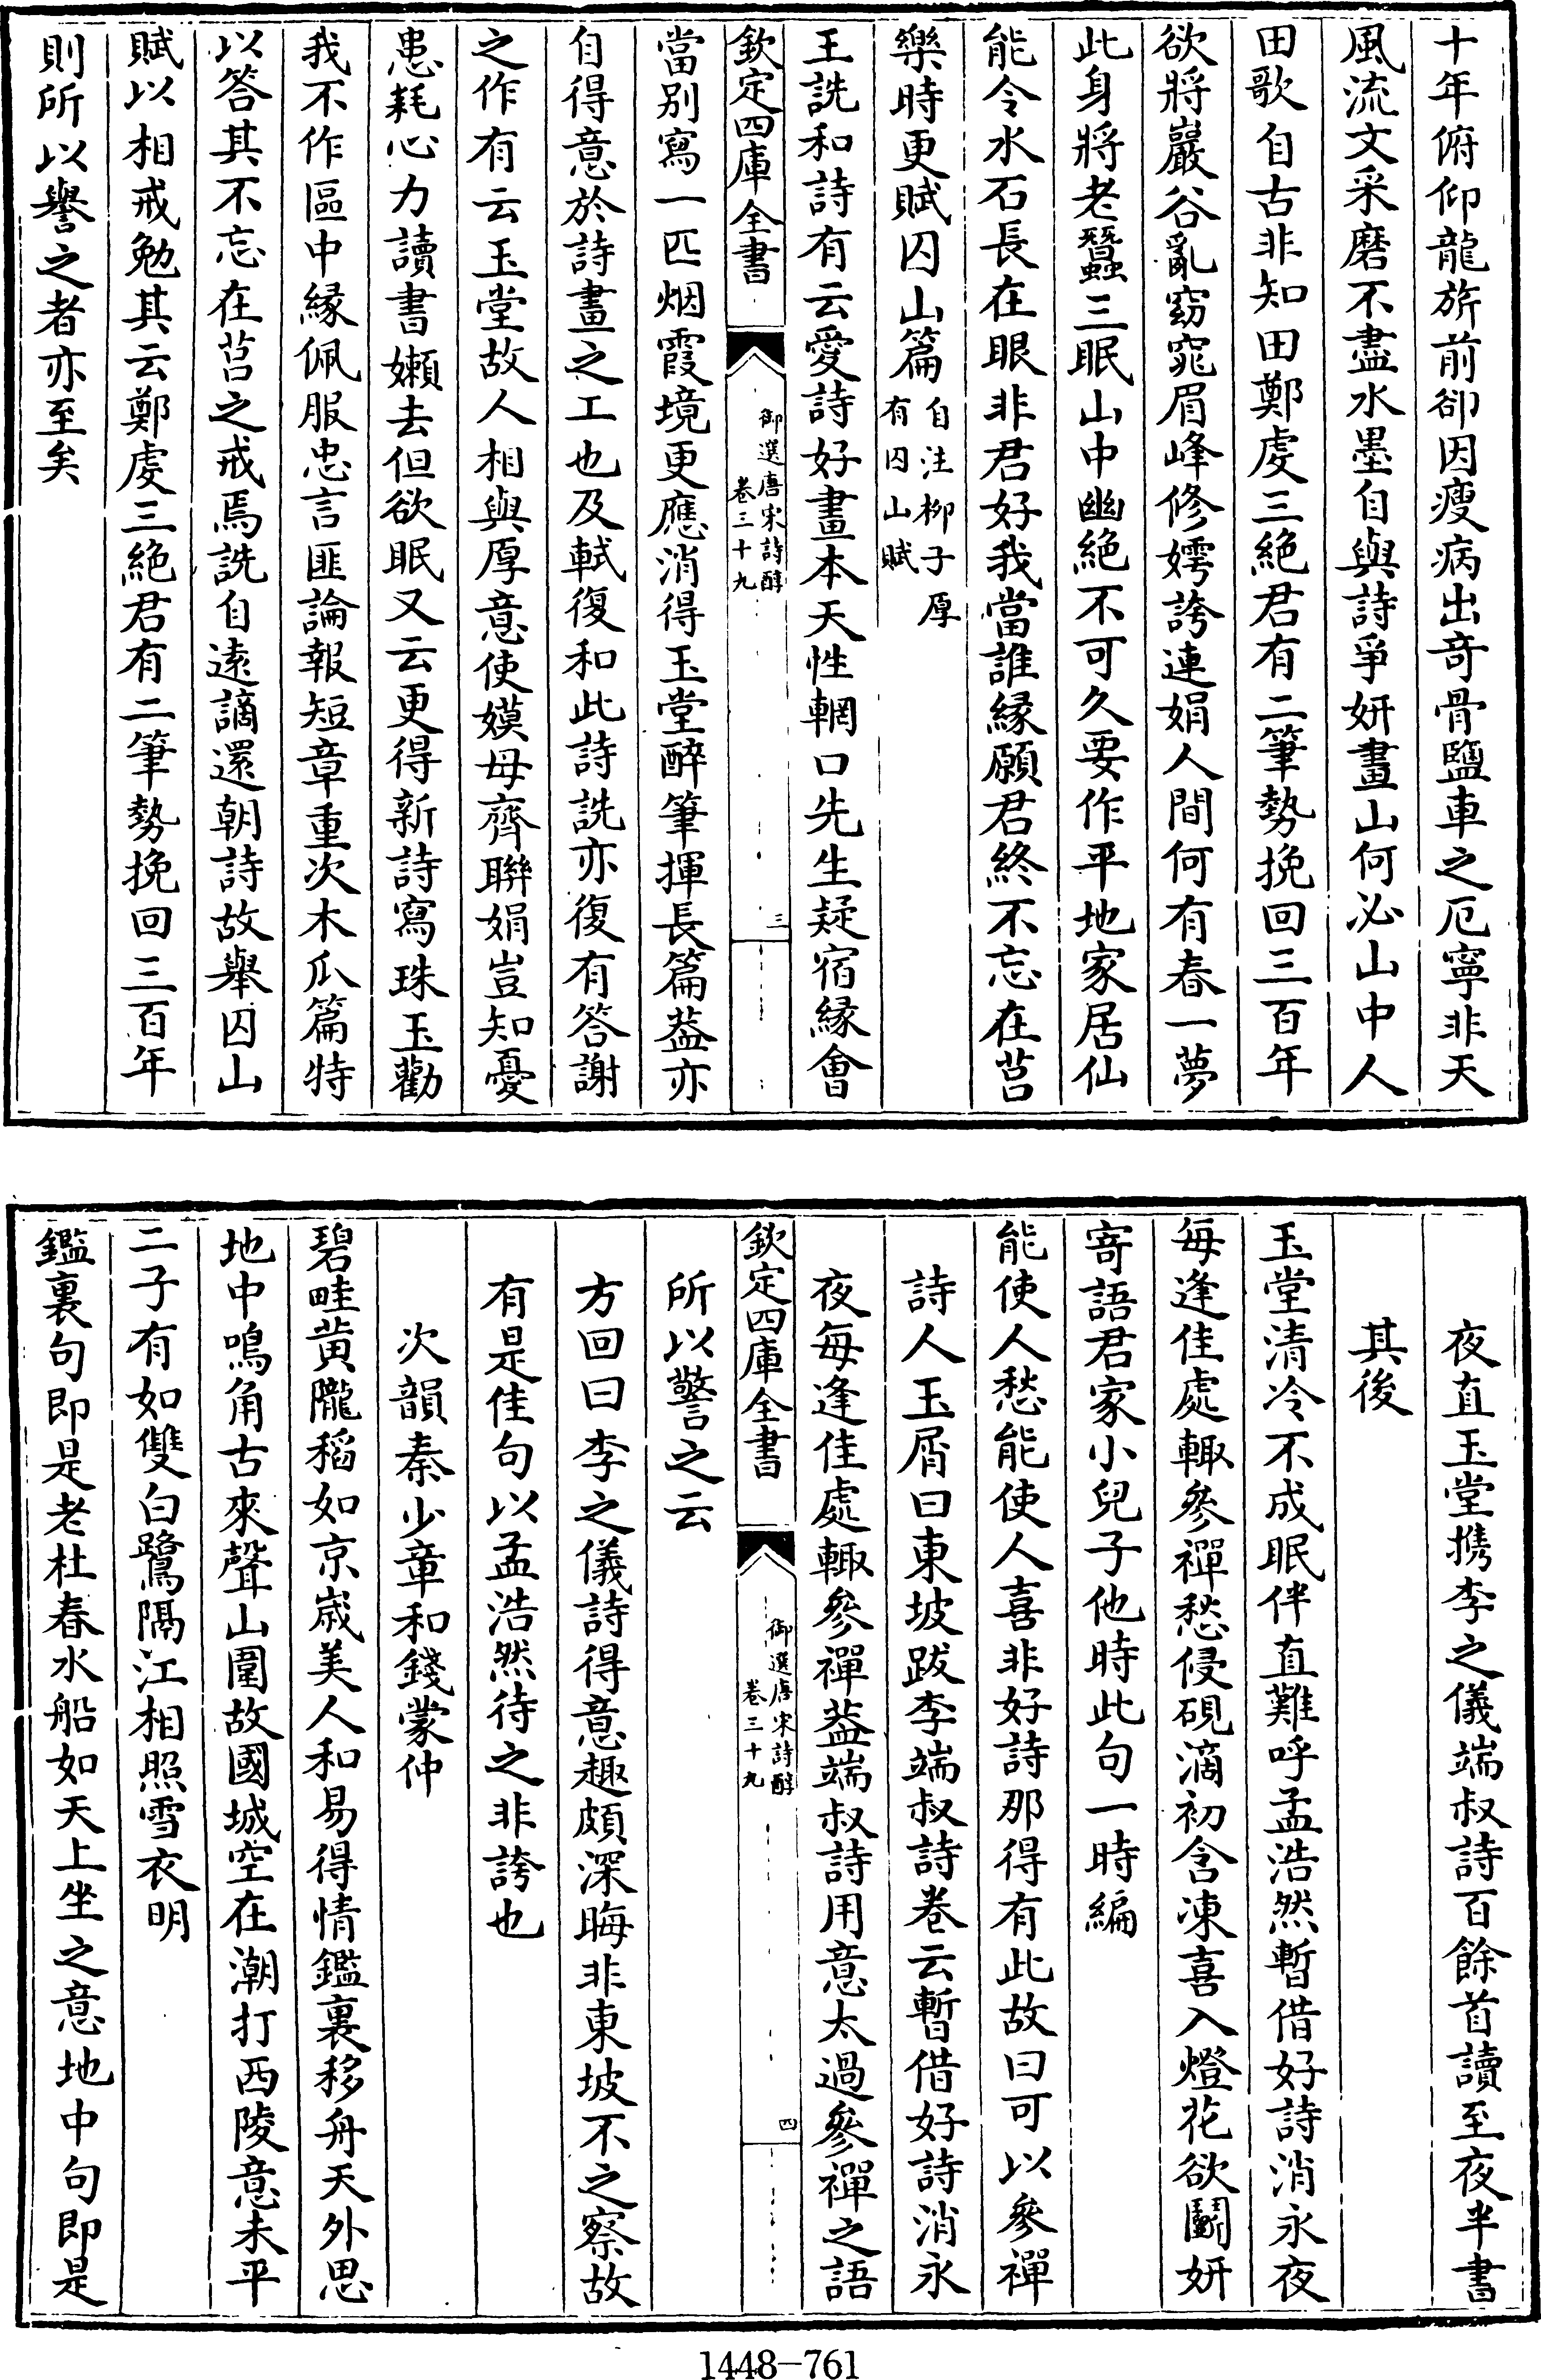 十年俯仰龍旂前卻因瘦病出奇骨鹽車之厄寧非天
風流文采磨不盡水墨自與詩爭妍畫山何必山中人
田歌自古非知田鄭虔三絶君有二筆勢挽回三百年
欲將巖谷亂窈窕眉峰修嫮誇連娟人間何有春一夢
此身將老蠶三眠山中幽絶不可久要作平地家居仙
能令水石長在眼非君好我當誰縁願君終不忘在莒
樂時更賦囚山篇自注柳子厚
有囚山賦
王詵和詩有云愛詩好畫本天性輞口先生疑宿縁會
欽定四庫全書
御選唐宋詩醇
卷三十九
三
當别寫一匹烟霞境更應消得玉堂醉筆揮長篇葢亦
自得意於詩畫之工也及軾復和此詩詵亦復有答謝
之作有云玉堂故人相與厚意使嫫母齊聯娟豈知憂
患耗心力讀書嬾去但欲眠又云更得新詩寫珠玉勸
我不作區中縁佩服忠言匪論報短章重次木瓜篇特
以答其不忘在莒之戒焉詵自逺謫還朝詩故舉囚山
賦以相戒勉其云鄭虔三絶君有二筆勢挽回三百年
則所以譽之者亦至矣
夜直玉堂攜李之儀端叔詩百餘首讀至夜半書
其後
玉堂清冷不成眠伴直難呼孟浩然暫借好詩消永夜
每逢佳處輙參禪愁侵硯滴初含凍喜入燈花欲鬭妍
寄語君家小兒子他時此句一時編
能使人愁能使人喜非好詩那得有此故曰可以參禪
詩人玉屑曰東坡跋李端叔詩卷云暫借好詩消永
夜每逢佳處輙參禪葢端叔詩用意太過參禪之語
欽定四庫全書
御選唐宋詩醇
卷三十九
四
所以警之云
方回曰李之儀詩得意趣頗深晦非東坡不之察故
有是佳句以孟浩然待之非誇也
次韻秦少章和錢蒙仲
碧畦黄隴稻如京嵗美人和易得情鑑裏移舟天外思
地中鳴角古來聲山圍故國城空在潮打西陵意未平
二子有如雙白鷺隔江相照雪衣明
鑑裏句即是老杜春水船如天上坐之意地中句即是
1448-761